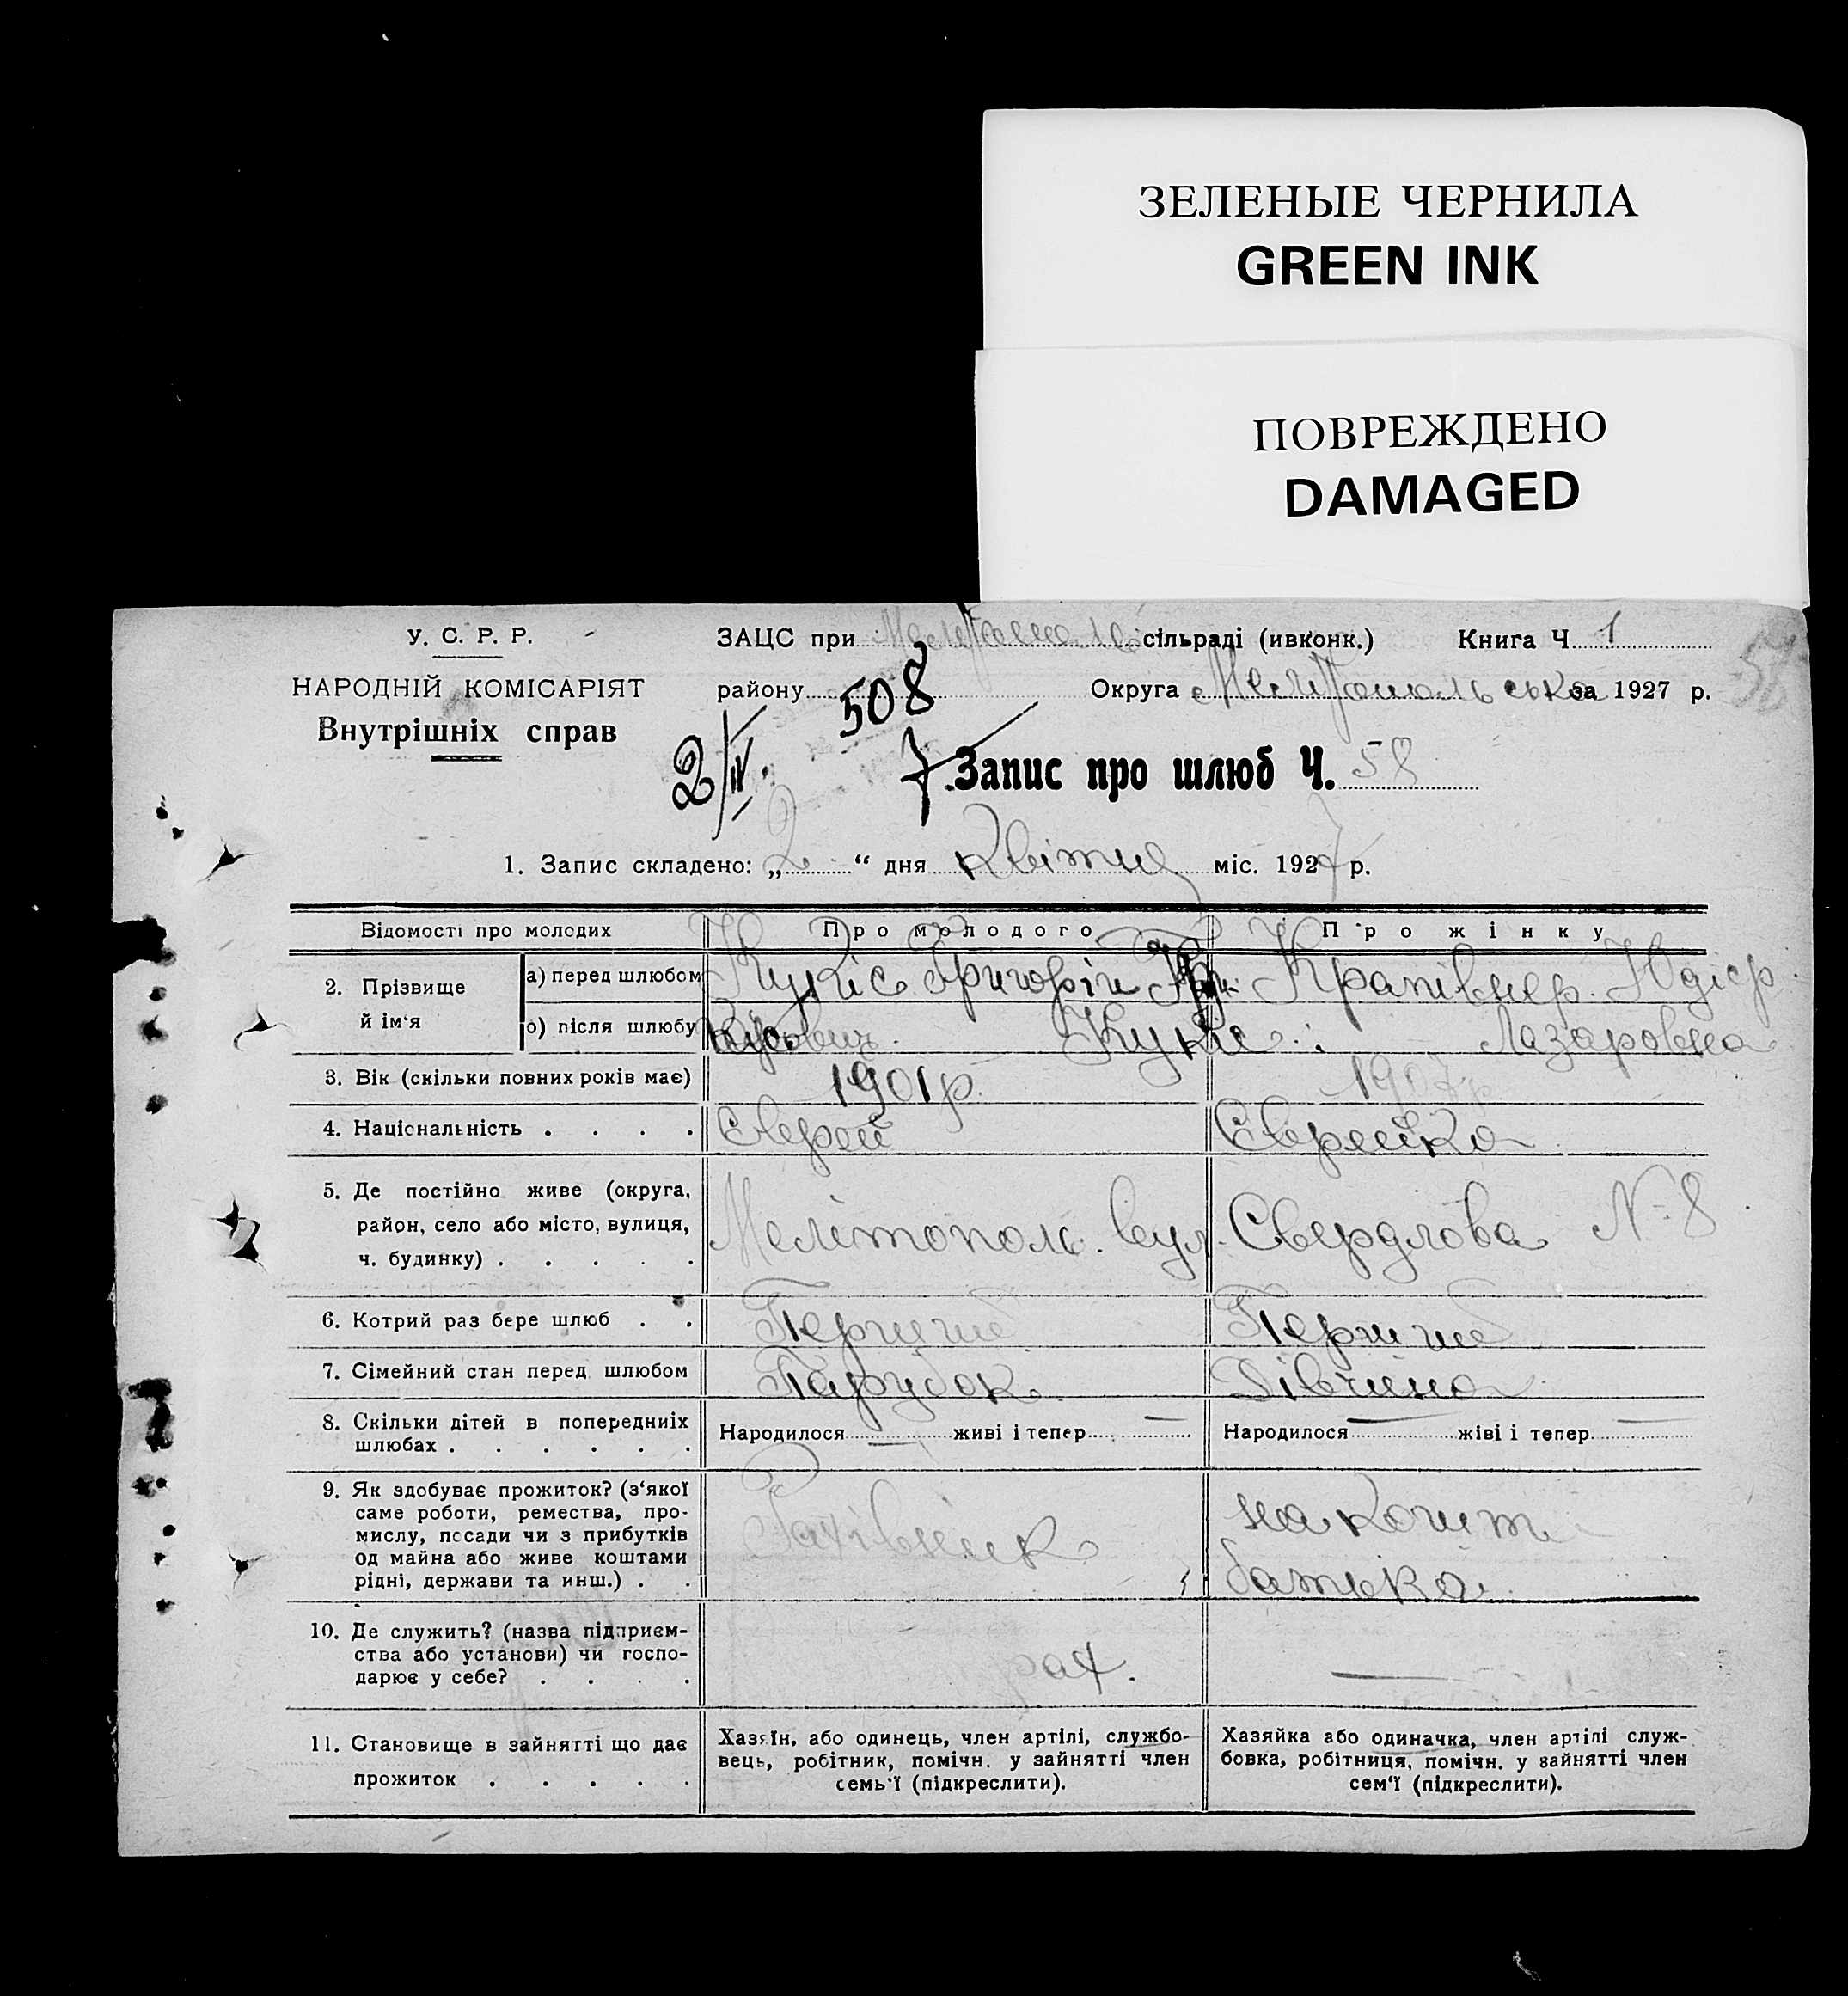 ЗЕЛЕНЫЕ ЧЕРНИЛА
GREEN INK
ПОВРЕЖДЕНО
DAMAGED
У. С. Р. Р.
ЗАЦС при сільраді (ивконк.) Книга Ч. 1
НАРОДНІЙ КОМІСАРІЯТ
району Округа Мелітопольська за 1927 р.
Внутрішніх справ
508
2/IV. 7
Запис про шлюб Ч. 58
1. Запис складено: „ 2 “ дня Квітня міс. 1927 р.
Відомості про молодих
Про молодого
Про жінку
2. Прізвище й ім‘я
а) перед шлюбом
Кукіс Григорій
Крапівнер
б) після шлюбу
Кукіс
Лазаровна
3. Вік (скільки повних років має)
1901р.
4. Національність . . . .
Єврей
Єврейка
5. Де постійно живе (округа,
район, село або місто, вулиця,
ч. будинку) . . . . .
Мелітополь. вул. Свердлова № 8
6. Котрий раз бере шлюб . .
Перший
Перший
7. Сімейний стан перед шлюбом
Парубок
Дівчина
8. Скільки дітей в попередниіх
шлюбах . . . . . .
Народилося — живі і тепер —
Народилося — жіві і тепер —
9. Як здобуває прожиток? (з‘якої
саме роботи, ремества, про-
мислу, посади чи з прибутків
од майна або живе коштами
рідні, держави та инш.) . .
на кошт
батька
10. Де служить? (назва підприєм-
ства або установи) чи госпо-
дарює у себе? . . . .
—
11. Становище в зайнятті що дає
прожиток . . . . .
Хазяїн, або одинець, член артілі, службо-
вець, робітник, помічн. у зайнятті член
семь‘ї (підкреслити).
Хазяйка або одиначка, член артілі служ-
бовка, робітниця, помічн. у зайнятті член
сем‘ї (підкреслити).